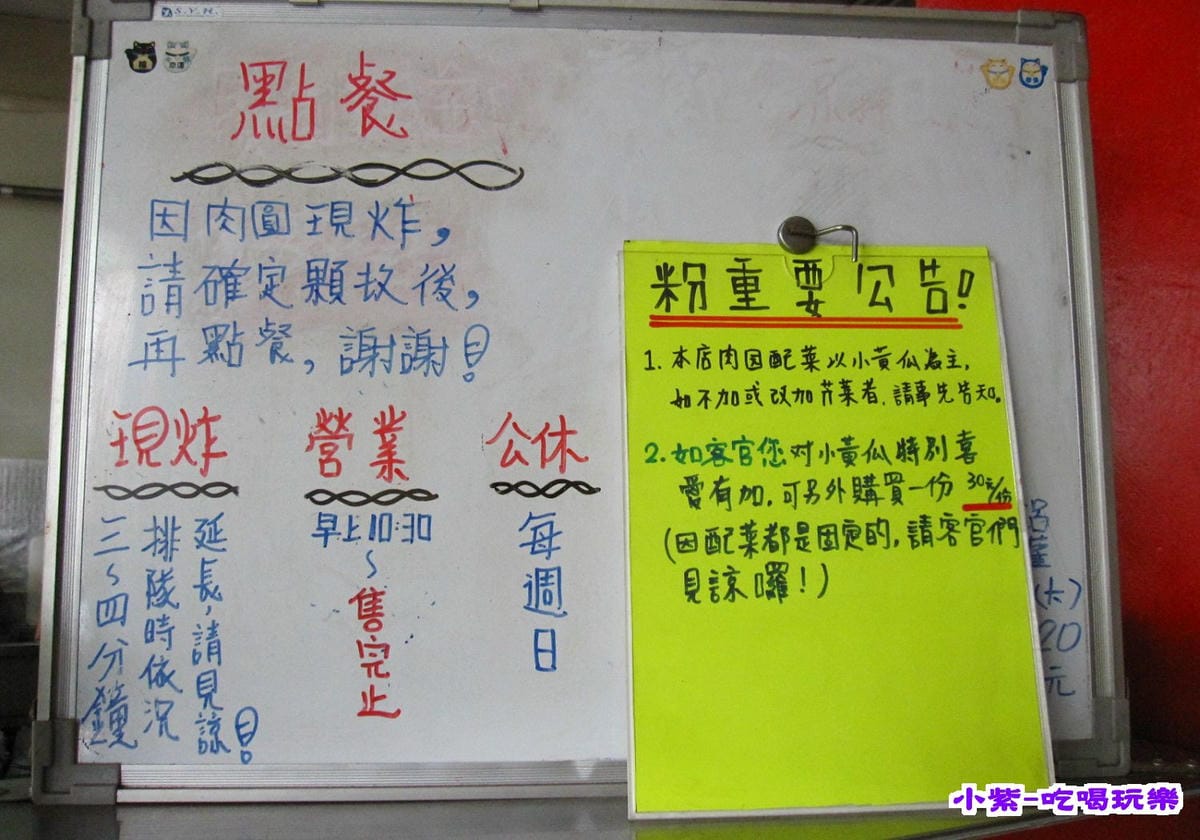 S.Y.H.
點餐
因肉圓現炸，
請確定顆故後，
再點餐，謝謝！
現炸
三～四分鐘
排隊時依況
延長，請見諒！
營業
早上10:30
～
售完止
公休
每週日
粉重要公告！
1. 本店肉圓配菜以小黃瓜為主，
如不加或改加芹菜者，請事先告知。
2. 如客官您对小黃瓜特別喜
愛有加，可另外購買一份 30元/份
(因配菜都是固定的，請客官們
見諒囉！)
(大)
20
元
小紫-吃喝玩樂